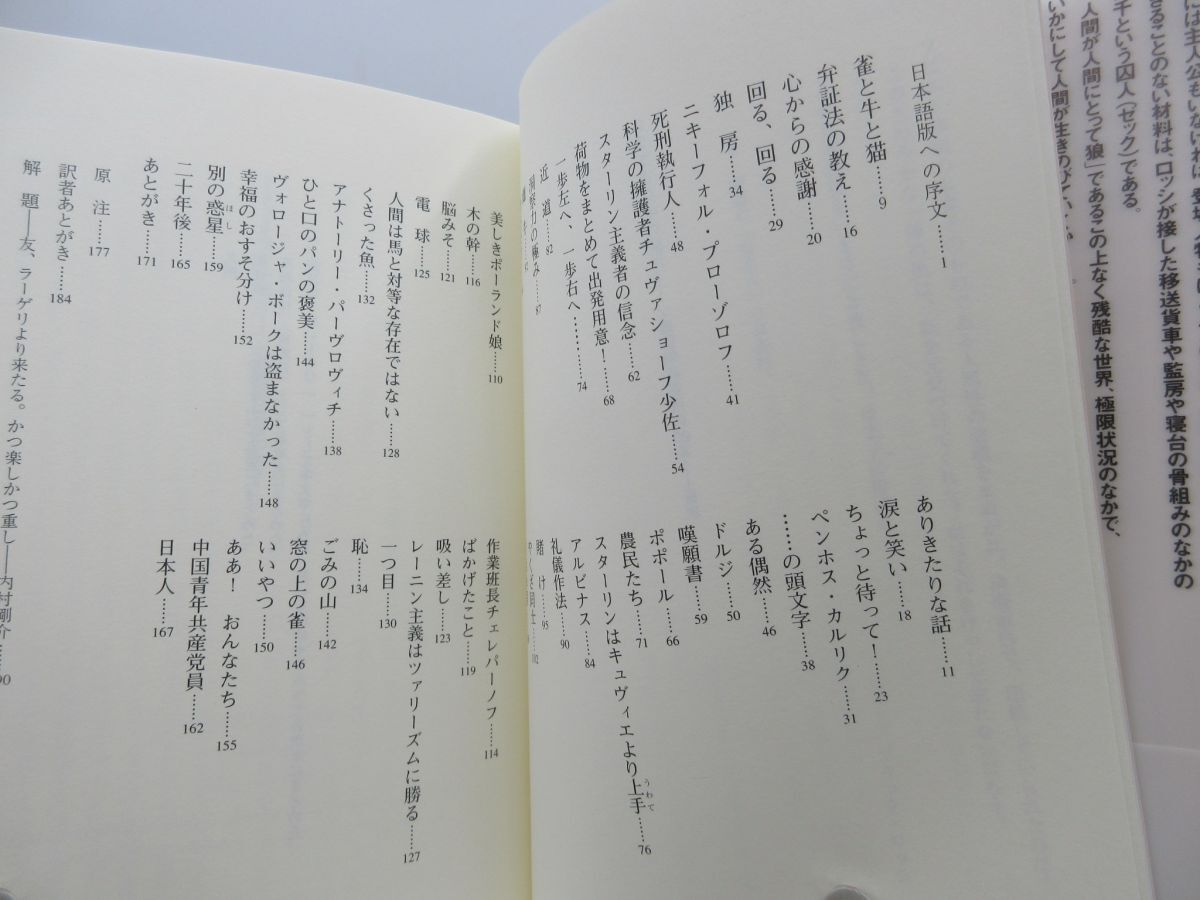 には主人公もいなけれ
きることのない材料は、ロッシが接した移送貨車や監房や寝台の骨組みのなかの
千という囚人(ゼック)である。
人間が人間にとって狼」であるこの上なく残酷な世界、極限状況のなかで、
いかにして人間が生きのび
日本語版への序文……1
雀と牛と猫……9
ありきたりな話……11
弁証法の教え……16
涙と笑い……18
心からの感謝……20
ちょっと待って!……23
回る、回る……29
ペンホス・カルリク……31
独房……34
……の頭文字……38
ニキーフォル・プローゾロフ……41
ある偶然……46
死刑執行人……48
ドルジ……50
科学の擁護者チュヴァショーフ少佐……54
嘆願書……59
スターリン主義者の信念……62
ポポール……66
荷物をまとめて出発用意!……68
農民たち……71
一歩左へ、一歩右へ………74
スターリンはキュヴィエより上手……76
うわて
近道……82
アルビナス……84
洞察力の極み……87
礼儀作法……90
賭け……95
美しきポーランド娘……110
作業班長チェレパーノフ……114
木の幹……116
ばかげたこと……119
脳みそ……121
吸い差し……123
電球……125
レーニン主義はツァリーズムに勝る……127
人間は馬と対等な存在ではない……128
一つ目……130
くさった魚……132
恥……134
アナトーリー・パーヴロヴィチ……138
ごみの山……142
ひと口のパンの褒美……144
窓の上の雀……146
ヴォロージャ・ボークは盗まなかった……148
いいやつ……150
幸福のおすそ分け……152
ああ! おんなたち……155
別の惑星……159
ほし
中国青年共産党員……162
二十年後……165
日本人……167
あとがき……171
原注……177
訳者あとがき……184
解題——友、ラーゲリより来たる。かつ楽しかつ重し——内村剛介……190